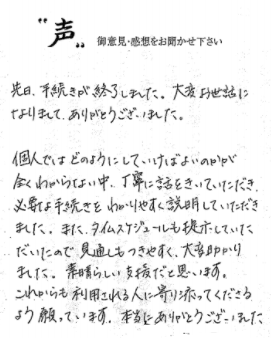 "声" 御意見・感想をお聞かせ下さい
先日、手続きが終了しました。大変お世話に
なりまして、ありがとうございました。
個人ではどのようにしていけばよいのかが
全くわからない中、丁寧に話をきいていただき、
必要な手続きをわかりやすく説明していただき
ました。また、タイムスケジュールも提示していた
だいたので見通しもつきやすく、大変助かり
ました。素晴らしい支援だと思います。
これからも利用される人に寄り添ってくださる
よう願っています。本当にありがとうございました